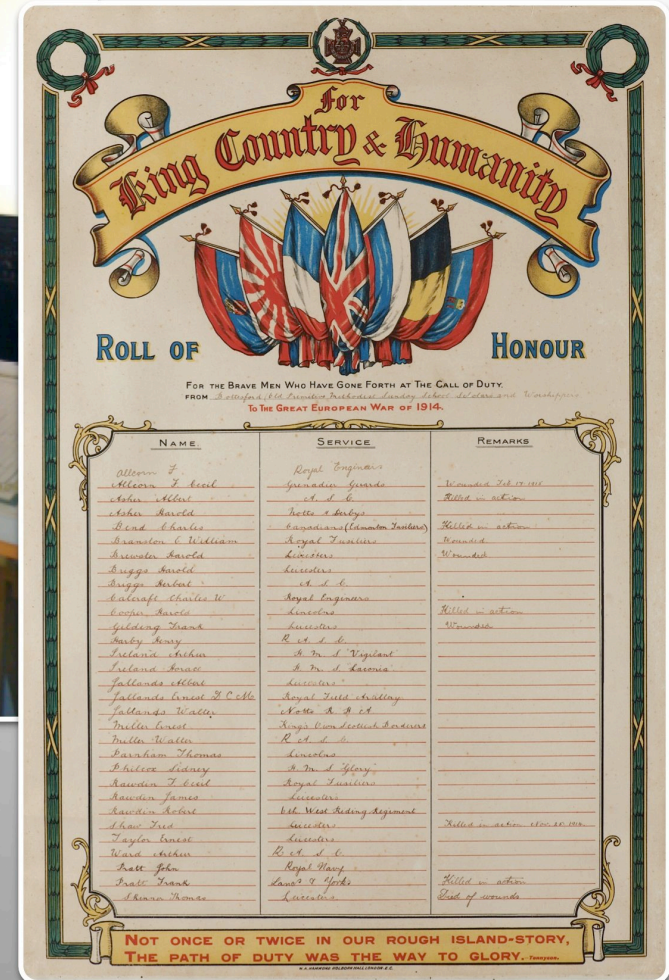 For
King Country & Humanity
ROLL OF HONOUR
FOR THE BRAVE MEN WHO HAVE GONE FORTH AT THE CALL OF DUTY.
FROM Bottesford Old Primitive Methodist Sunday School Scholars and Worshippers
TO THE GREAT EUROPEAN WAR OF 1914.
NAME. SERVICE REMARKS
Allcorn F. Royal Engineers
Allcorn F Cecil Grenadier Guards Wounded Feb 19. 1915
Asher Albert A. S. C. Killed in action
Asher Harold Notts & Derbys
Bend Charles Canadians (Edmonton Fusiliers) Killed in action
Branston C William Royal Fusiliers Wounded
Brewster Harold Leicesters Wounded
Briggs Harold Leicesters
Briggs Herbert A. S. C.
Calcraft Charles W Royal Engineers
Cooper Harold Lincolns Killed in action
Gilding Frank Leicesters Wounded
Harby Henry R. A. S. C.
Ireland Arthur H. M. S "Vigilant"
Ireland Horace H. M. S "Laconia"
Jallands Albert Leicesters
Jallands Ernest D C M Royal Field Artillery
Jallands Walter Notts R. H. A
Miller Ernest King's Own Scottish Borderers
Miller Walter R. A. S. C.
Parnham Thomas Lincolns
Philcox Sidney H. M. S "Glory"
Rawden F Cecil Royal Fusiliers
Rawden James Leicesters
Rawdin Robert 6th West Riding Regiment
Shaw Fred Leicesters Killed in action Nov.
Taylor Ernest Leicesters
Ward Arthur R. A. S. C.
Pratt John Royal Navy
Pratt Frank Lanc & Yorks Killed in action
Skinner Thomas Leicesters Died of wounds
NOT ONCE OR TWICE IN OUR ROUGH ISLAND-STORY,
THE PATH OF DUTY WAS THE WAY TO GLORY. -TENNYSON.
W.A. HAMMOND HOLBORN HALL LONDON. E.C.